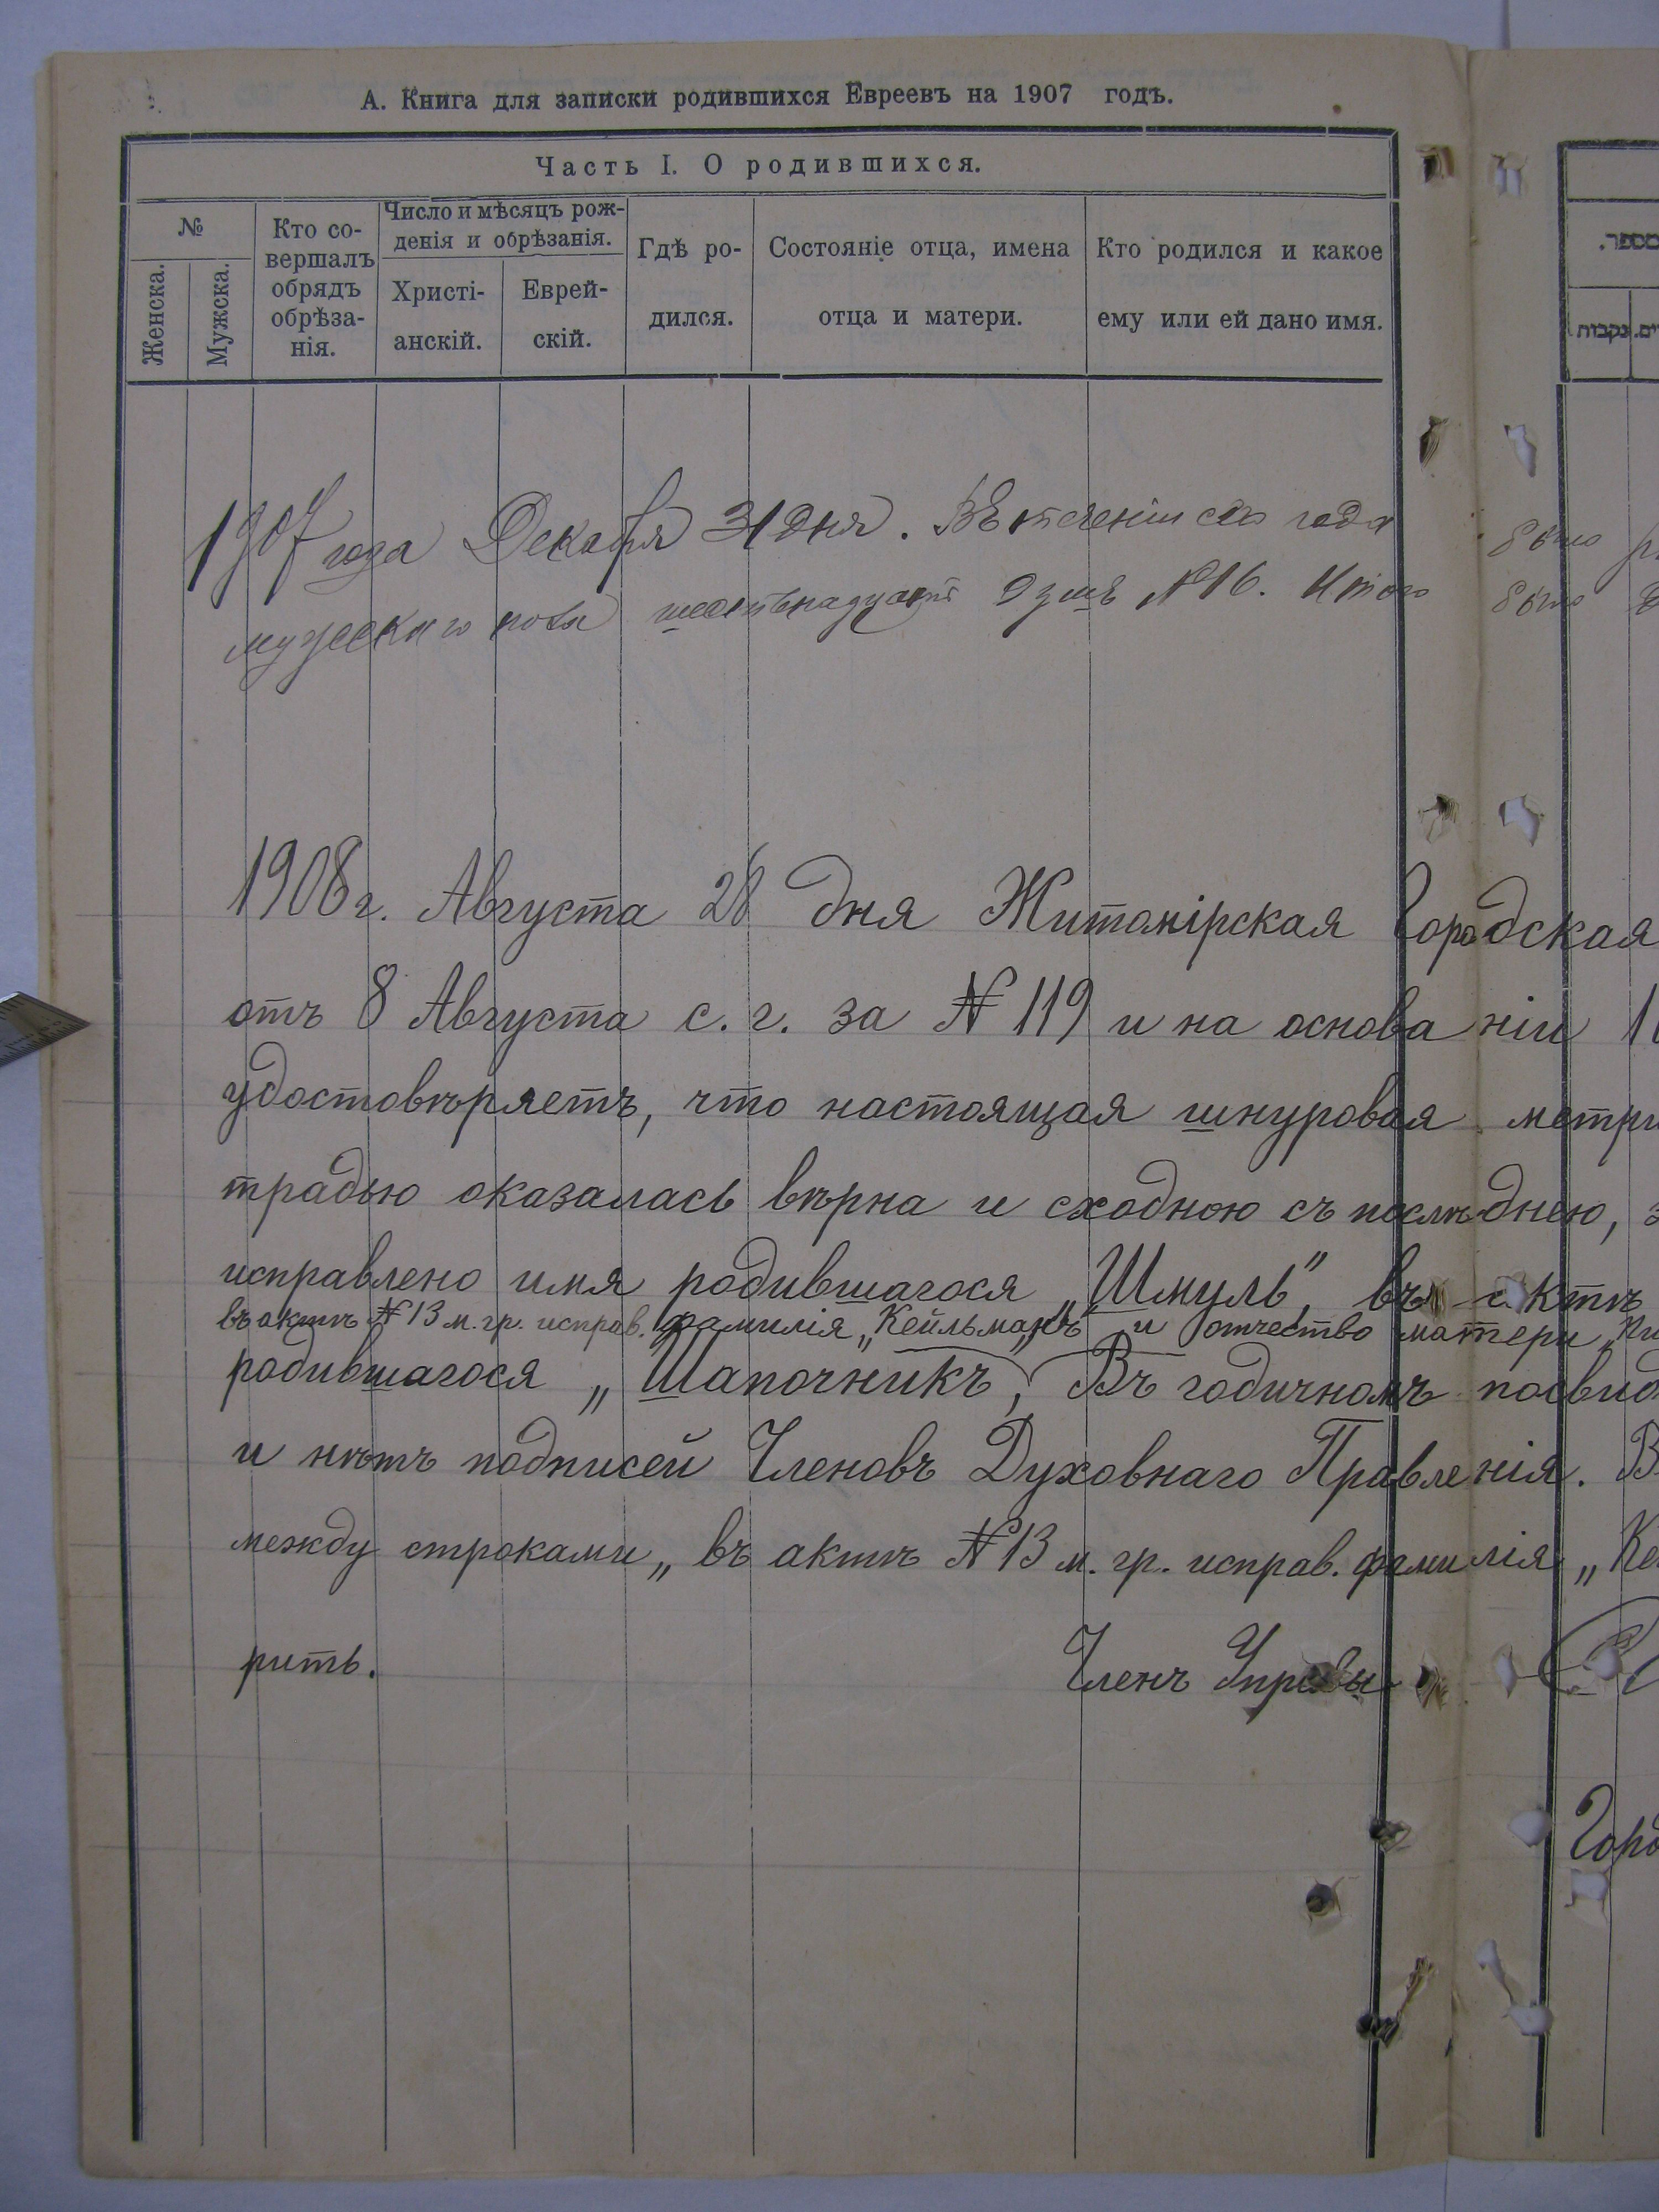 А. Книга для записки родившихся Евреевъ на 1907 годъ.
Часть I. О родившихся.
№
Женска.
Мужска.
Кто со-
вершалъ
обрядъ
обрѣза-
нія.
Число и мѣсяцъ рож-
денія и обрѣзанія.
Христі-
анскій.
Еврей-
скій.
Гдѣ ро-
дился.
Состояніе отца, имена
отца и матери.
Кто родился и какое
ему или ей дано имя.
מספר.
נקבות
1907 года Декабря 31 дня. Въ теченіи сего года было
мужеского пола шестьнадцать душъ №16. Итого было
1908 г. Августа 28 дня Житомірская Городская
отъ 8 Августа с. г. за № 119 и на основаніи
удостовѣряетъ, что настоящая шнуровая метри
традью оказалась вѣрна и сходною съ послѣднею,
исправлено имя родившагося „Шмуль", въ актѣ
въ актѣ № 13 м. гр. исправ. фамилія „Кейльманъ" и отчество матери
родившагося „Шапочникъ, Въ годичномъ посвид
и нѣтъ подписей Членовъ Духовнаго Правленія. В
между строками „въ актѣ № 13 м. гр. исправ. фамилія „Ке
рить. Членъ Управы
Горо